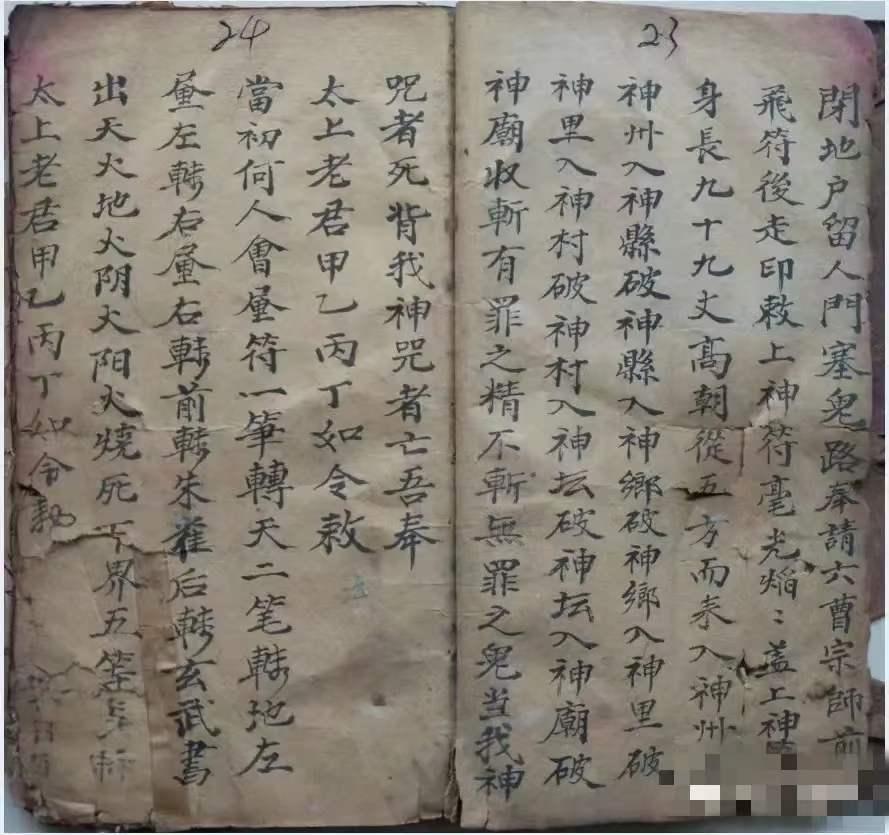 23
閉地户留人門塞鬼路奉請六曹宗師前
飛符後走印敕上神符毫光焰〻盖上神
身長九十九丈高朝從五方而来入神州
神州入神縣破神縣入神鄉破神鄉入神里破
神里入神村破神村入神坛破神坛入神廟破
神廟收斬有罪之精不斬無罪之鬼当我神
24
咒者死背我神咒者亡吾奉
太上老君甲乙丙丁如令敕
當初何人會𤲞符一筆轉天二笔轉地左
𤲞左轉右𤲞右轉前轉朱雀后轉玄武書
出天火地火阴火阳火燒死下界五
太上老君甲乙丙丁如令勅